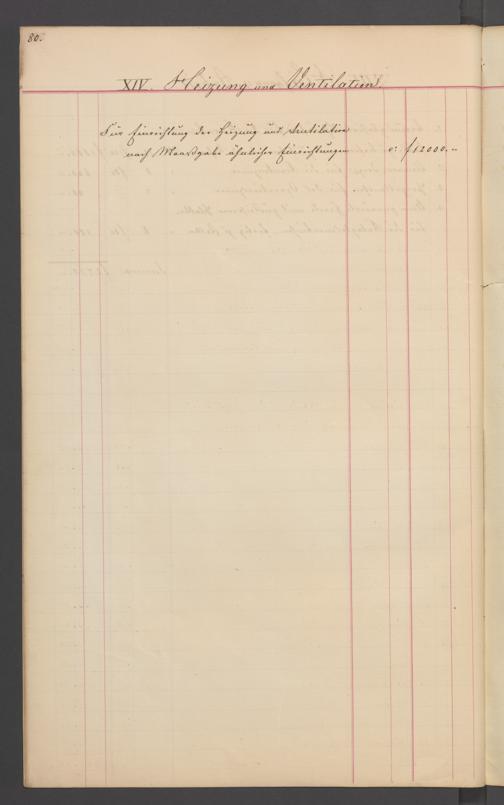 80.
XIV. Heizung und Ventilation.
Für Einrichtung der Heizung und Ventilation
nach Maassgabe ähnlicher Einrichtungen f 12000.-